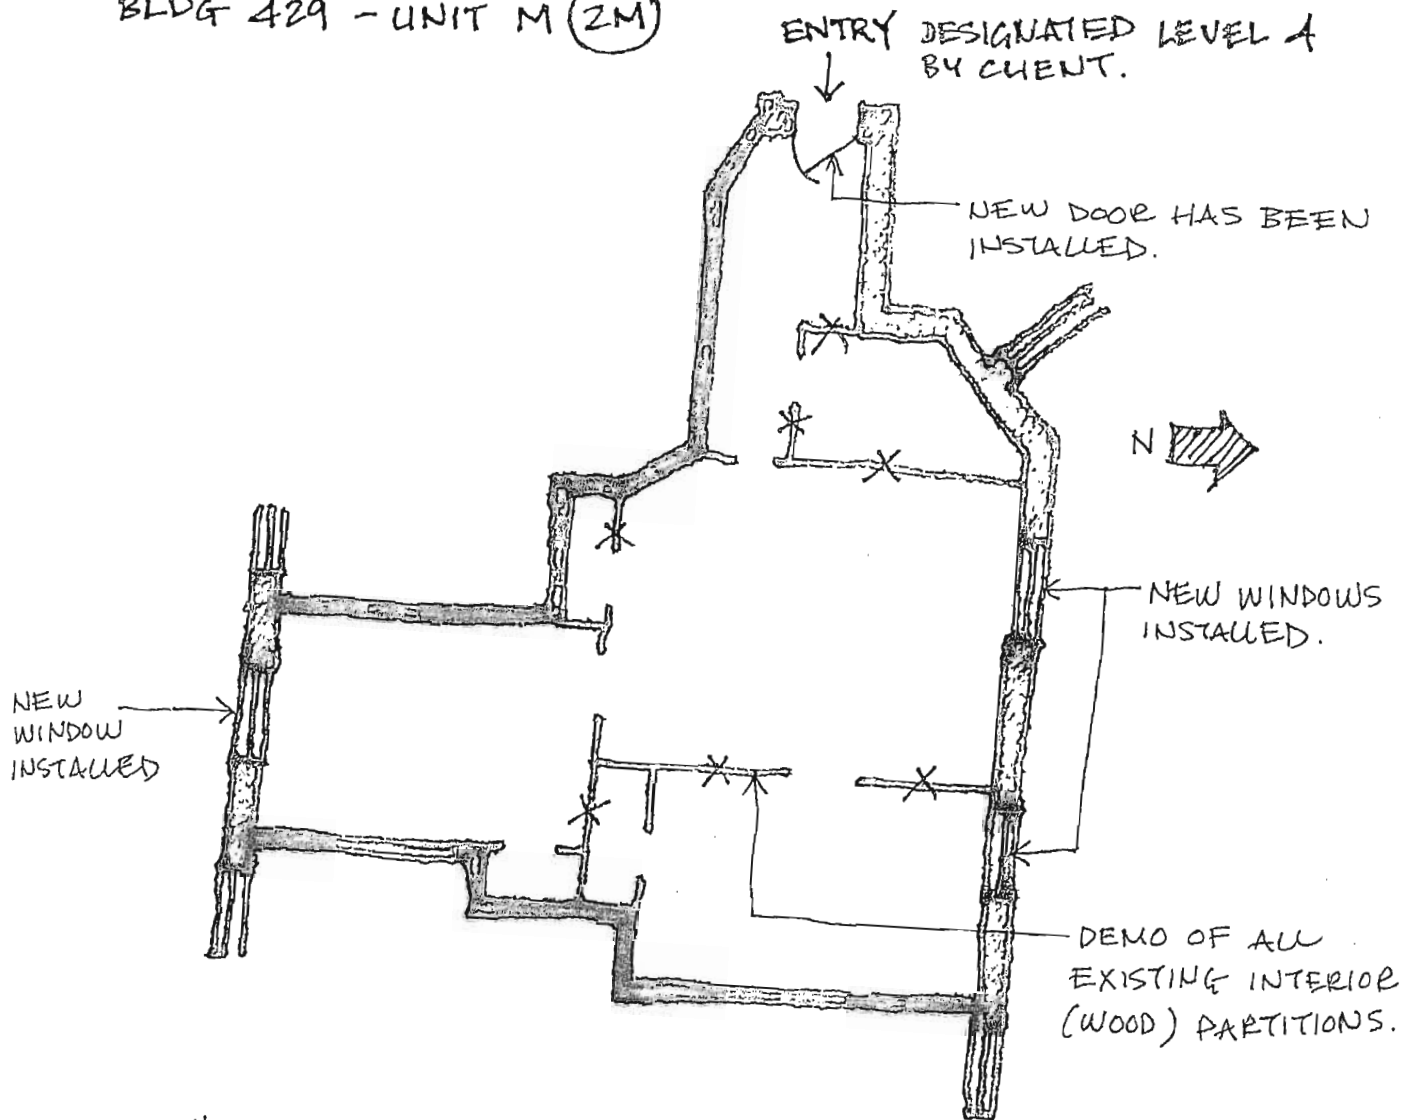 BLDG 429 - UNIT M (2M)
ENTRY DESIGNATED LEVEL 4
BY CLIENT.
NEW DOOR HAS BEEN
INSTALLED.
N
NEW WINDOWS
INSTALLED.
NEW
WINDOW
INSTALLED
DEMO OF ALL
EXISTING INTERIOR
(WOOD) PARTITIONS.